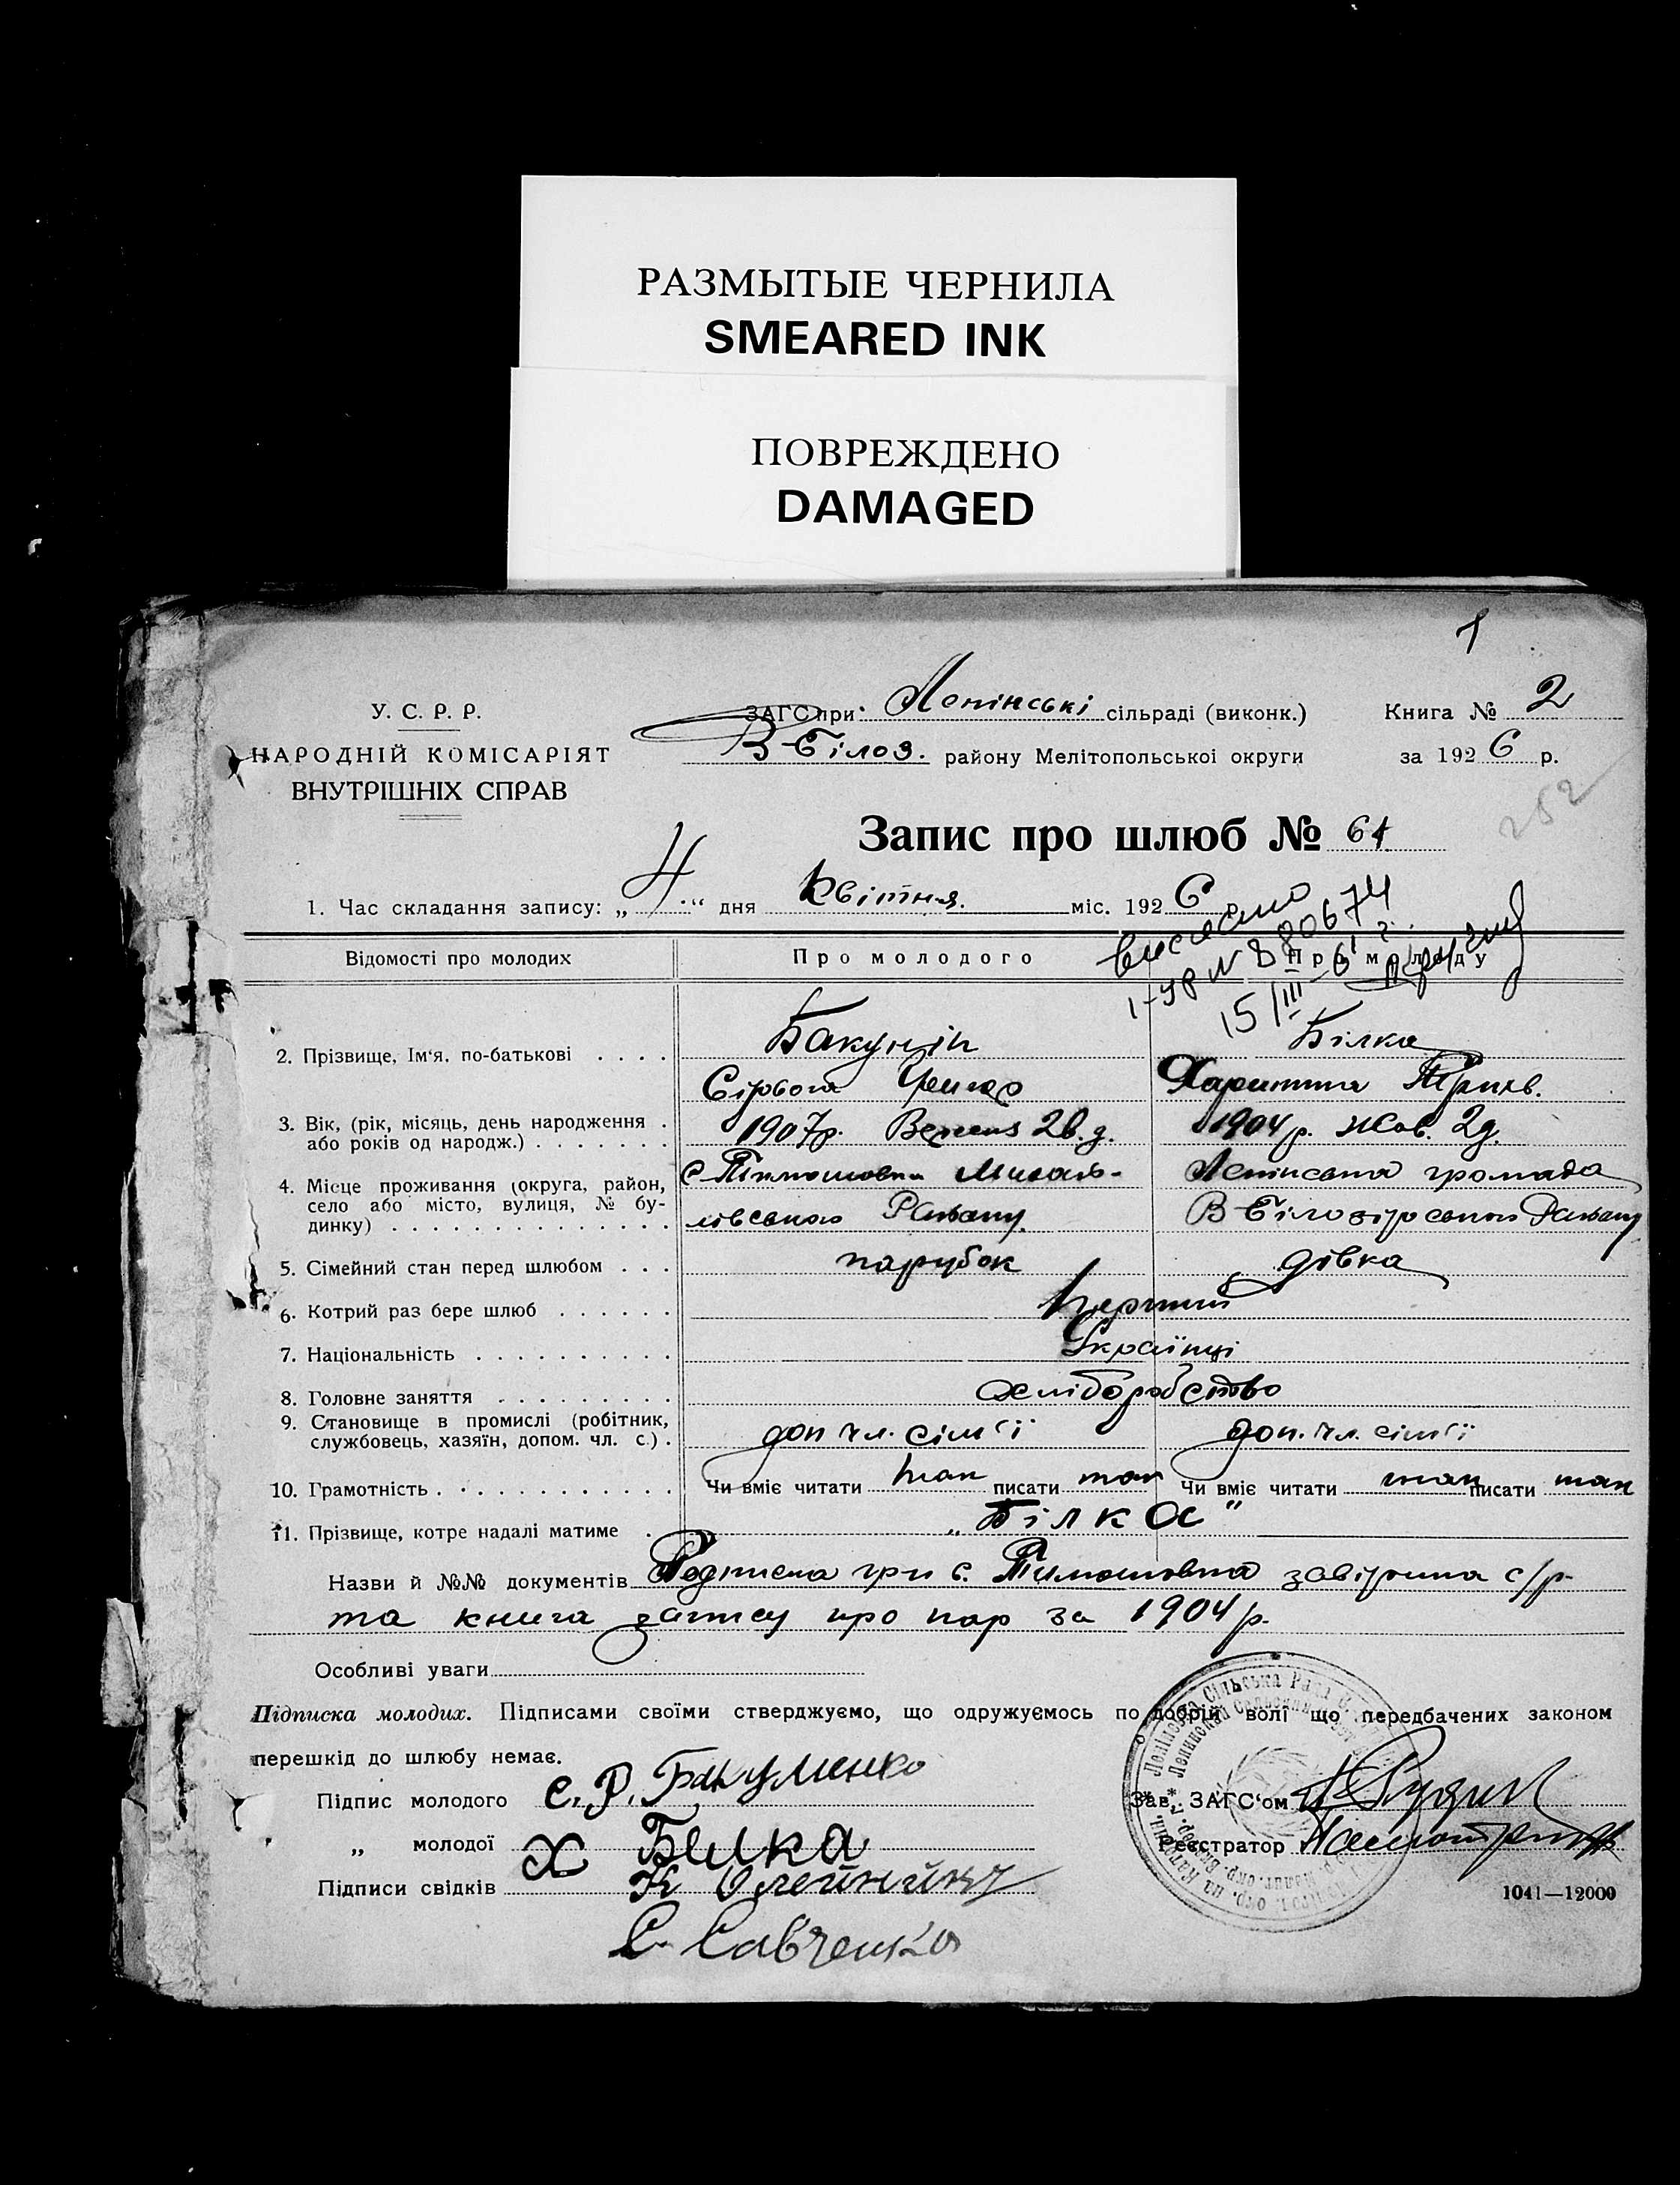 РАЗМЫТЫЕ ЧЕРНИЛА
SMEARED INK
ПОВРЕЖДЕНО
DAMAGED
1
У. С. Р. Р.
НАРОДНІЙ КОМІСАРІЯТ
ВНУТРІШНІХ СПРАВ
ЗАГС при Ленінські сільраді (виконк.)
В-Білоз. району Мелітопольської округи
Книга № 2
за 1926 р.
252
Запис про шлюб № 61
1. Час складання запису: „4“ дня Квітня міс. 1926 р.
№ 380674
15/III
Відомості про молодих
Про молодого
Про молоду
2. Прізвище, Ім'я, по-батькові . . . .
Бакумін
Білка
3. Вік, (рік, місяць, день народження .
або років од народж.) . . . . . .
1907р.
1904 р. Жов. 2д.
4. Місце проживання (округа, район,
село або місто, вулиця, № бу-
динку) . . . . . . . . . . . . . .
с Тимошовки Михай-
лівського Району.
Ленінська громада
В-Білозірського Району
5. Сімейний стан перед шлюбом . . .
парубок
дівка
6. Котрий раз бере шлюб . . . . . .
Перший
7. Національність . . . . . . . . . .
Українці
8. Головне заняття . . . . . . . . .
Хліборобство
9. Становище в промислі (робітник,
службовець, хазяїн, допом. чл. с.) .
доп чл. сім'ї
доп. чл. сім'ї
10. Грамотність . . . . . . . . . . . .
Чи вміє читати так писати так
Чи вміє читати так писати так
11. Прізвище, котре надалі матиме .
„Білка“
Назви й №№ документів Подписка гр-н с. Тимошовка завірена с/р
та книга запису про нар за 1904 р.
Особливі уваги
Підписка молодих. Підписами своїми стверджуємо, що одружуємось по добрій волі що передбачених законом
перешкід до шлюбу немає.
Підпис молодого С. Р. Бакуменко
„ молодої Х Билка
Підписи свідків К Олейник
С. Савченко
Зав. ЗАГС'ом
Реєстратор
1041—12000